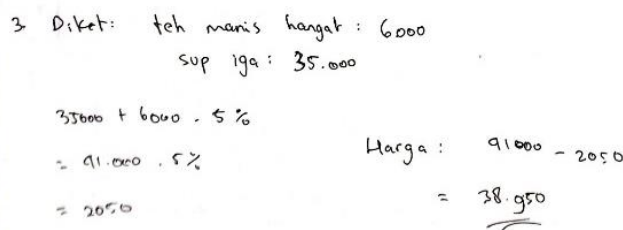 3. Diket: teh manis hangat : 6000
sup iga : 35.000
35000 + 6000 . 5%
= 41.000 . 5%
= 2050
Harga : 41000 - 2050
= 38.950